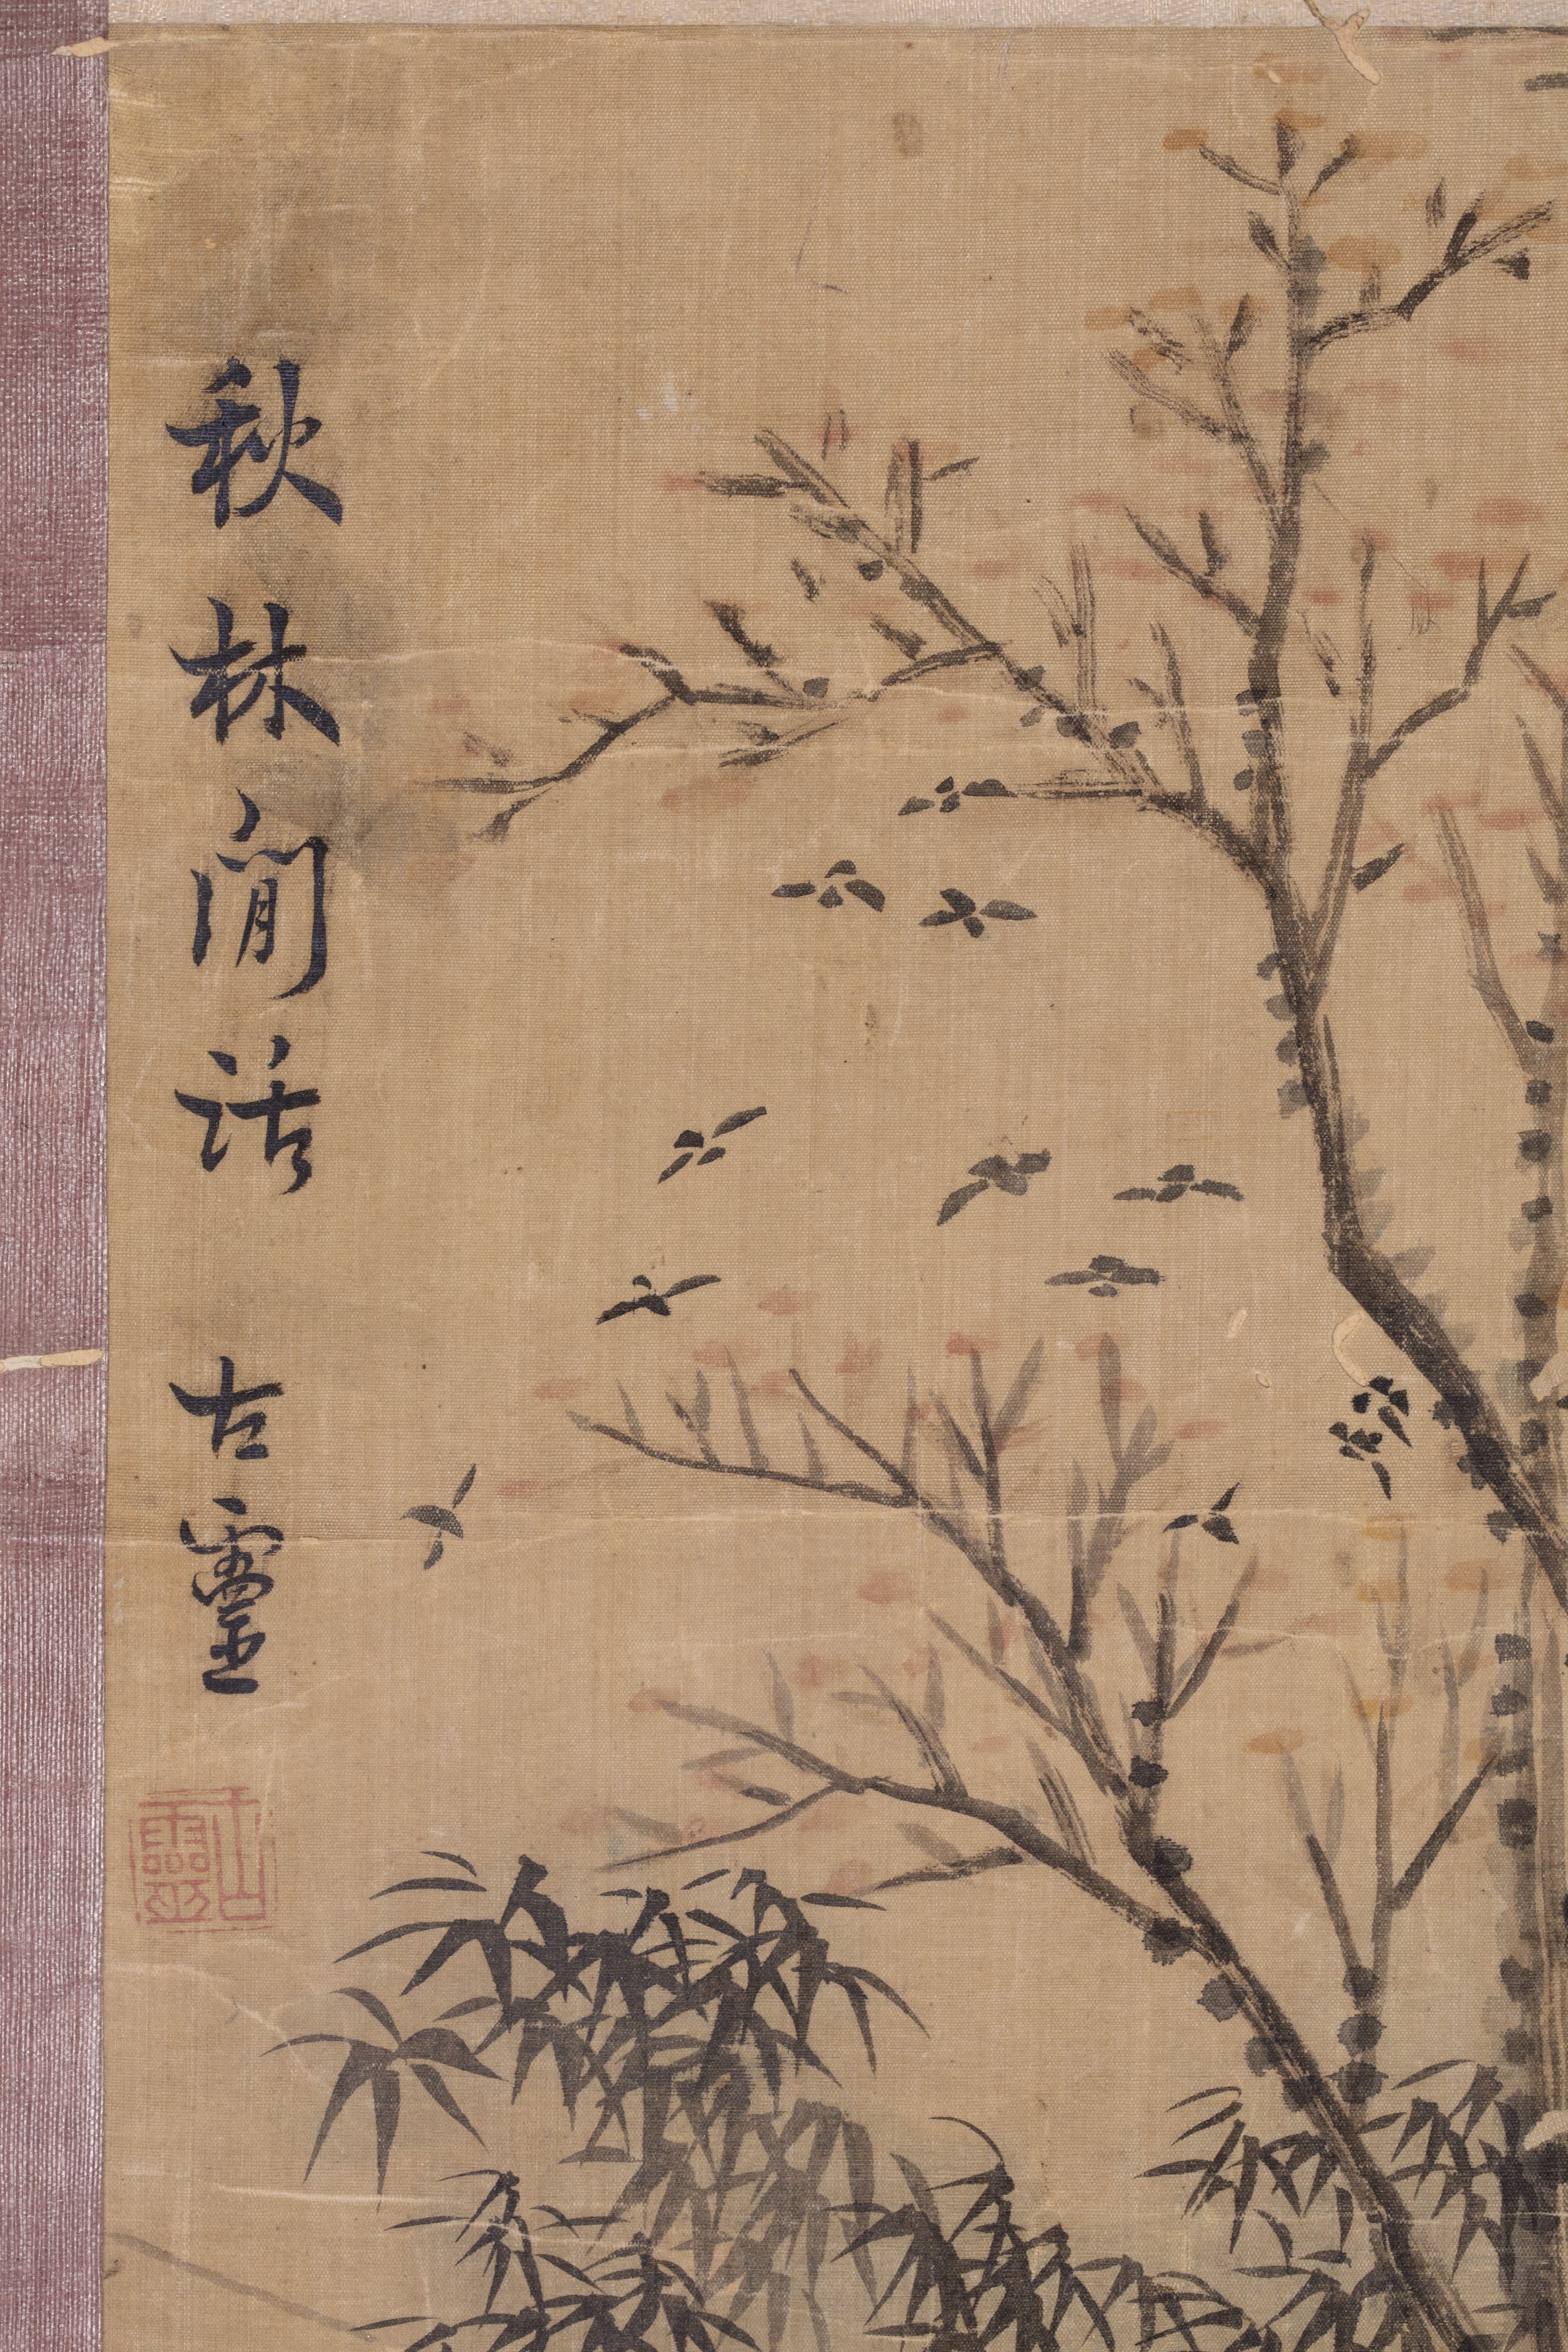 秋林閒話 古靈